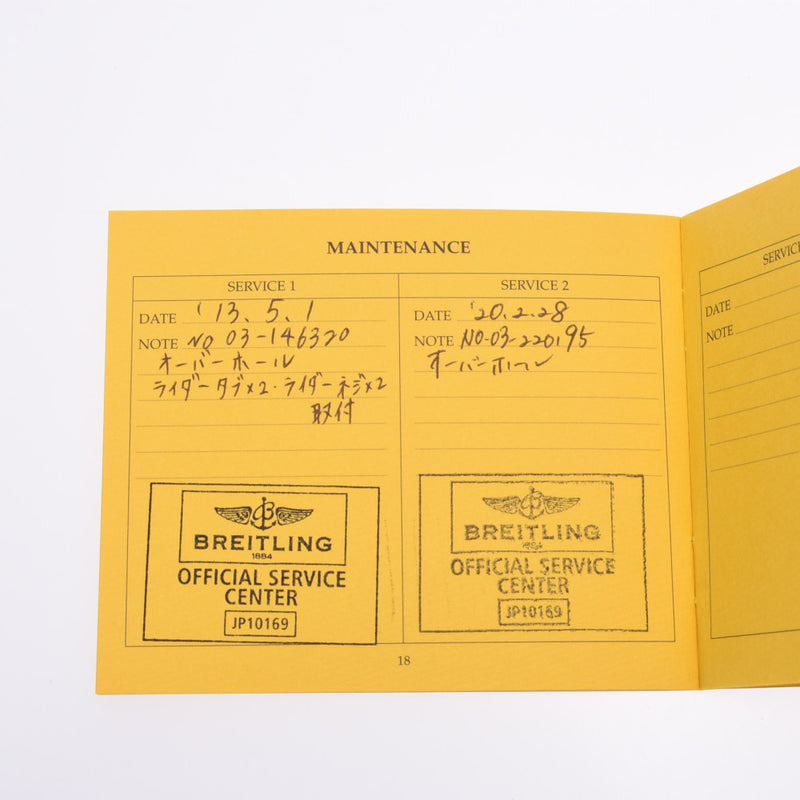 MAINTENANCE
SERVICE 1
DATE '13.5.1
NOTE NO 03-146320
オーバーホール
ライダータブ×2・ライダーネジ×2
取付
BREITLING
1884
OFFICIAL SERVICE
CENTER
JP10169
SERVICE 2
DATE '20.2.28
NOTE NO.03-220195
オーバーホール
BREITLING
1884
OFFICIAL SERVICE
CENTER
JP10169
18
SERVICE
DATE
NOTE